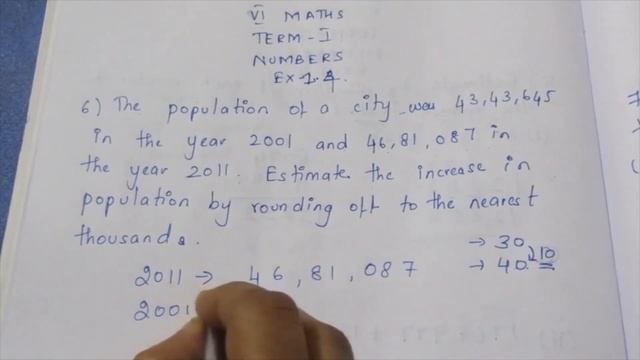 VI MATHS
TERM - I
NUMBERS
EX 1.4.
6) The population of a city was 43,43,645
in the year 2001 and 46,81,087 in
the year 2011. Estimate the increase in
population by rounding off to the nearest
thousands.
→ 30
2011 → 46,81,087 → 40 10
2001